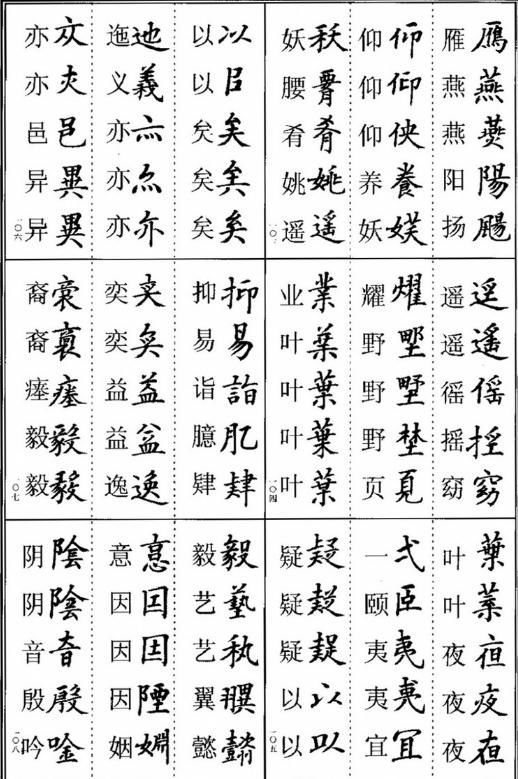 鴈燕陽颺
雁燕燕阳扬
仰仰佒養
仰仰仰养妖
肴姚遥
妖腰肴姚遥
遥遥傜窈
遥遥徭摇窈
燿野埜
耀野野野页
業葉葉葉葉
业叶叶叶叶
葉葉夜夜夜
叶叶夜夜夜
弌夷夷冝
一颐夷夷宜
疑疑疑以以
疑疑疑以以
以㠯矣矣矣
以以矣矣矣
迆義亦
迤义亦亦亦
亦邑異異
亦亦邑异异
一〇六
抑易詣肊肄
抑易诣臆肄
奕奕益益逸
奕奕益益逸
裔瘞毅毅
裔裔瘗毅毅
一〇七
毅藝秇翼懿
毅艺艺翼懿
囙因陻婣
意因因因姻
陰陰音殷唫
阴阴音殷吟
一〇八